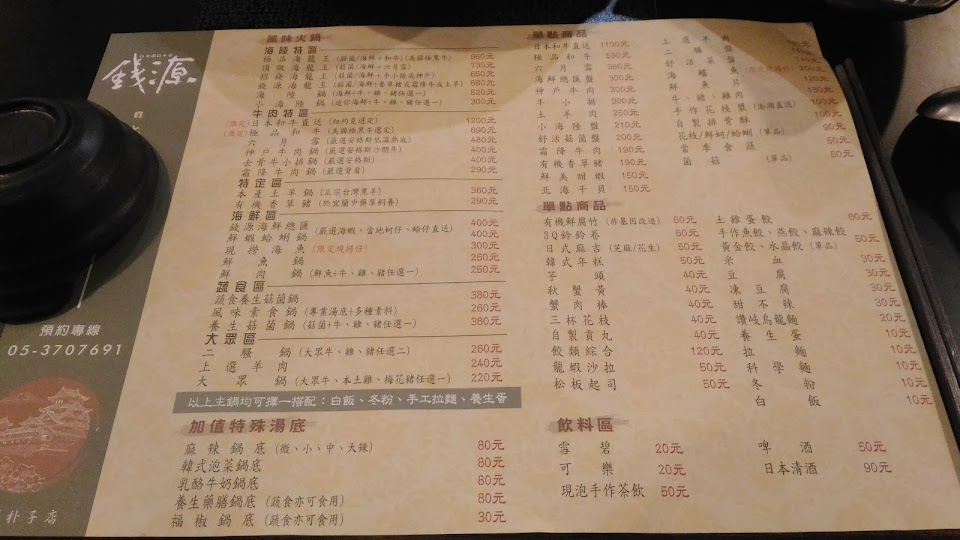 錢源
預約專線
05-3707691
朴子店
風味火鍋
海陸特區
極品海龍王(菇菌/海鮮+和牛)(美國極黑牛) 960元
頂級海龍王(菇菌/海鮮+六月雪) 730元
招錢海龍王(菇菌/海鮮+牛小排或神戶) 650元
錢源海龍王 620元
海陸鍋(海鮮+牛、雞、豬任選) 520元
小海陸鍋(迷你海鮮+牛、雞、豬任選) 300元
牛肉特區
(限定)日本和牛直送(紐約克選定) 1200元
(限定)極品和牛(美國極黑牛選定) 690元
六月雪(嚴選安格斯低溫熟成) 480元
神戶牛肉鍋(嚴選安格斯沙朗牛) 400元
去骨牛小排鍋(嚴選安格斯) 400元
霜降牛肉鍋(嚴選背眉) 290元
特定區
本產土羊鍋(正宗台灣黑羊) 360元
有機香草豬(於宜蘭中藥草飼養) 290元
海鮮區
錢源海鮮總匯(嚴選海蝦、當地蚵仔、蛤仔直送) 400元
鮮蝦蛤蜊鍋 400元
現撈海魚(限定現撈仔) 300元
鮮魚鍋 250元
鮮肉鍋(鮮魚+牛、雞、豬任選一) 250元
蔬食區
蔬食養生菇菌鍋 380元
風味素食鍋(專業湯底+多種素料) 260元
養生菇菌鍋(菇菌+牛、雞、豬任選一) 380元
大眾區
二騷鍋(大眾牛、雞、豬任選二) 260元
上選羊肉 240元
大眾鍋(大眾牛、本土雞、梅花豬任選一) 220元
以上主鍋均可擇一搭配：白飯、冬粉、手工拉麵、養生蛋
加值特殊湯底
麻辣鍋底(微、小、中、大辣) 80元
韓式泡菜鍋底 80元
乳酪牛奶鍋底 80元
養生藥膳鍋底(蔬食亦可食用) 80元
福椒鍋底(蔬食亦可食用) 30元
單點商品
日本和牛直送 1100元
極品和牛 590元
六月雪 380元
海鮮總匯盤 300元
神戶牛肉 300元
牛小排 300元
土羊肉 250元
小海陸盤 210元
舒活菇菌盤 200元
霜降牛肉 190元
有機香草豬 190元
鮮美甜蝦 150元
北海干貝 150元
上選羊肉
二騷菜盤
舒活
海鱺魚
鮮魚片
牛、豬、雞肉 120元
手作花枝盤(澎湖直送) 100元
自製排骨酥
花枝/鮮蚵/蛤蜊(單品) 90元
當季食蔬 50元
菌菇(單品) 50元
單點商品
有機鮮腐竹(非基因改造) 50元
3Q鈴鈴卷 50元
日式麻吉(芝麻/花生) 50元
韓式年糕 50元
芋頭 40元
秋蟹黃 40元
蟹肉棒 40元
三杯花枝 40元
自製貢丸 40元
餃類綜合 120元
龍蝦沙拉 50元
松板起司 50元
土雞蛋餃 60元
手作魚餃、燕餃、麻辣餃
黃金餃、水晶餃(單品) 50元
米血 30元
豆腐 30元
凍豆腐 30元
甜不辣 30元
讚岐烏龍麵 20元
養生蛋 10元
拉麵 10元
科學麵 10元
冬粉 10元
白飯 10元
飲料區
雪碧 20元
可樂 20元
現泡手作茶飲 50元
啤酒 50元
日本清酒 90元